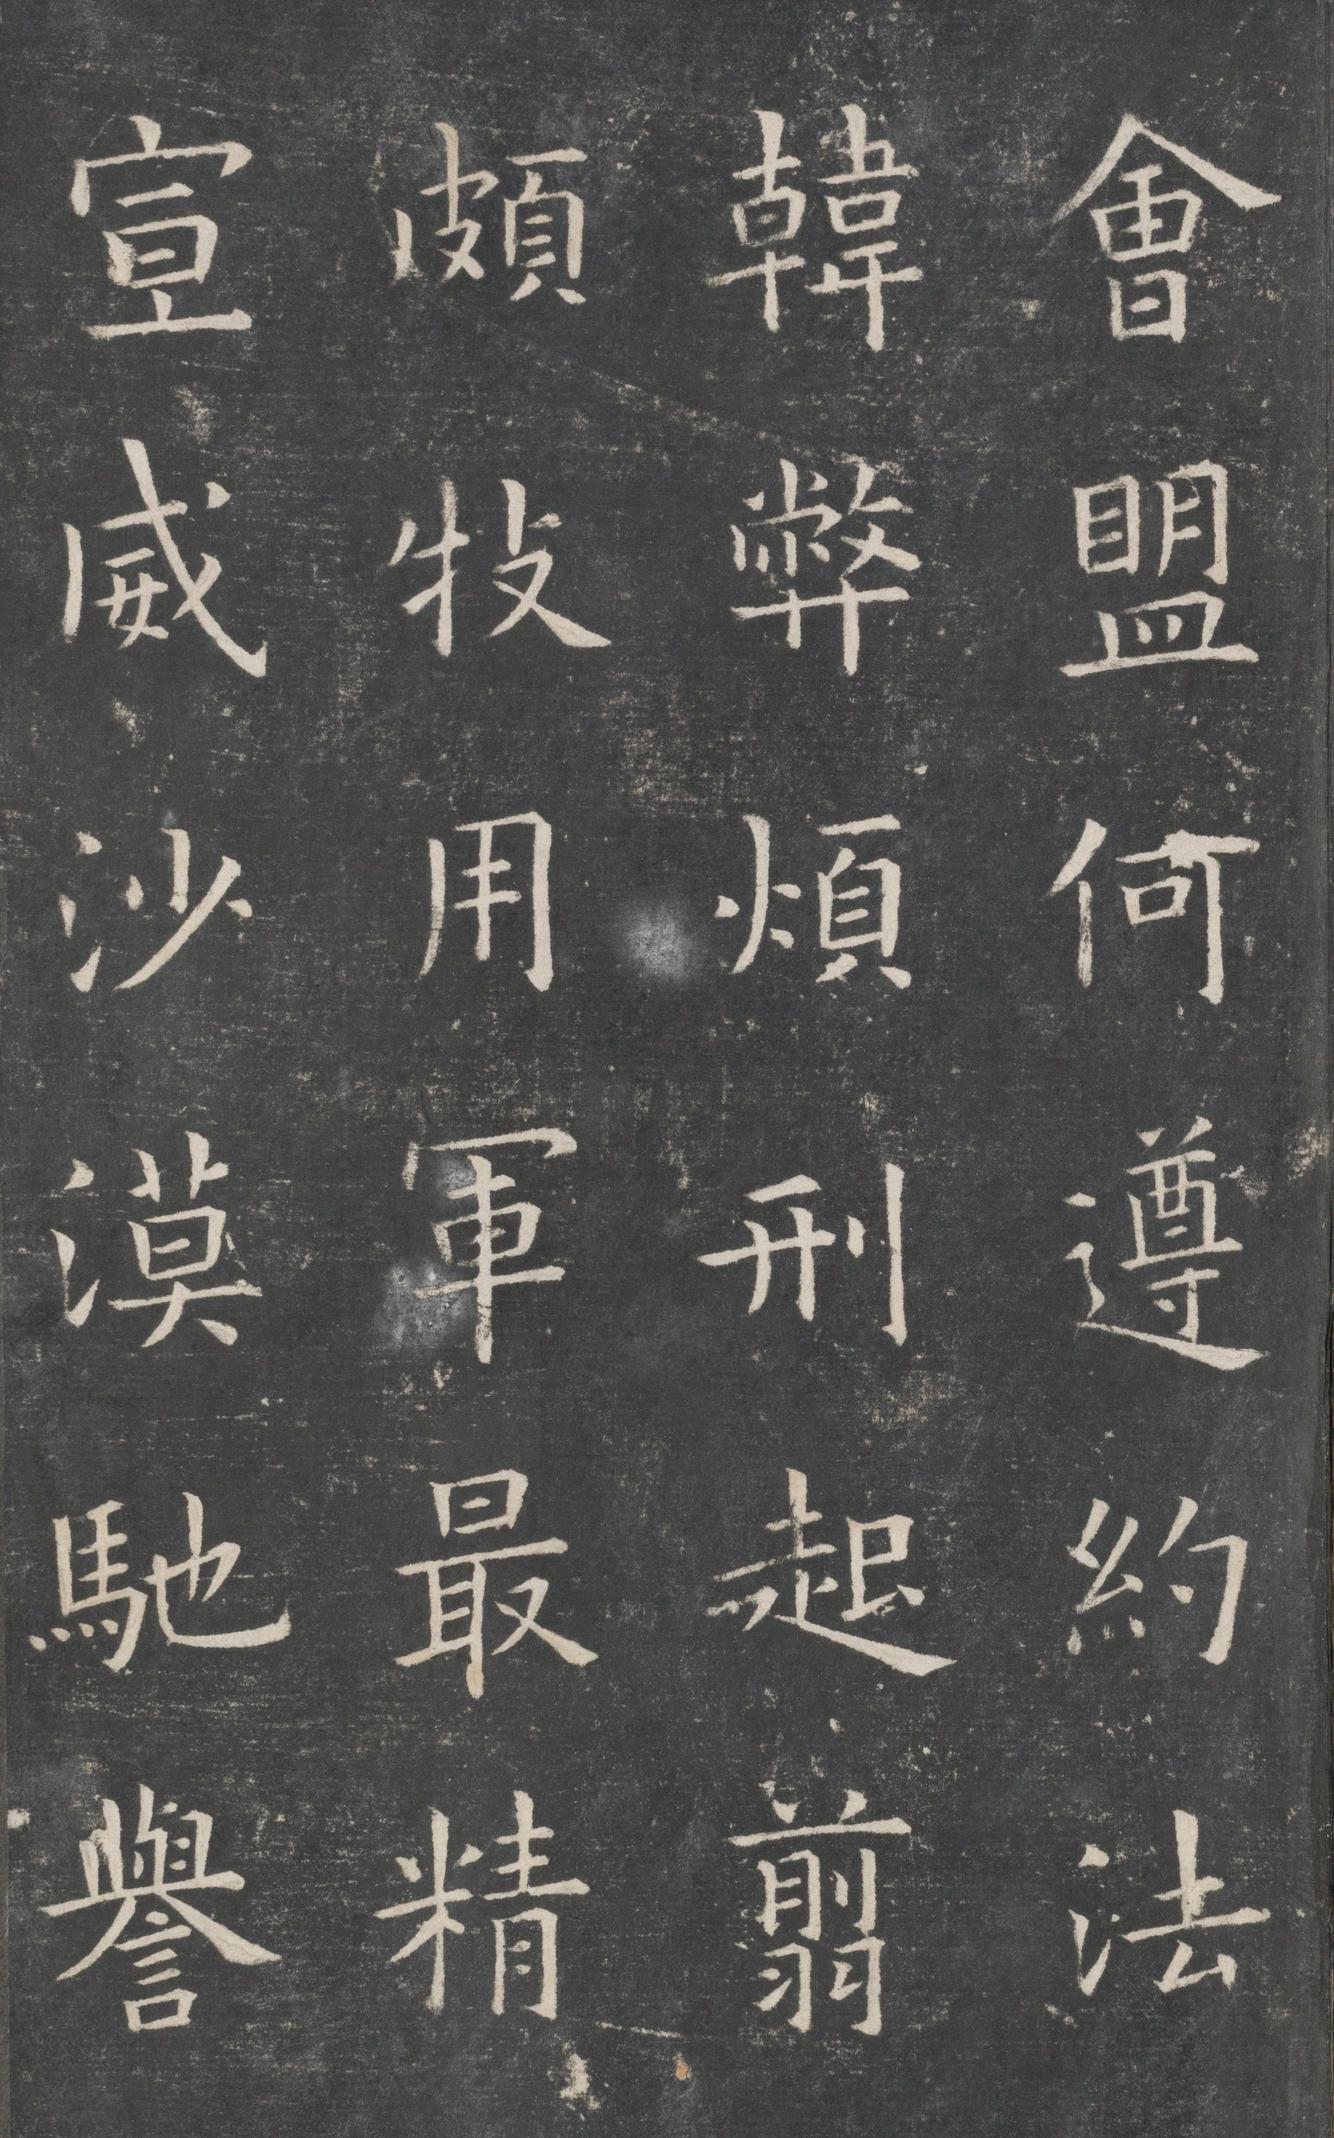 會盟何遵約法
韓弊煩刑起翦
頗牧用軍最精
宣威沙漠馳譽